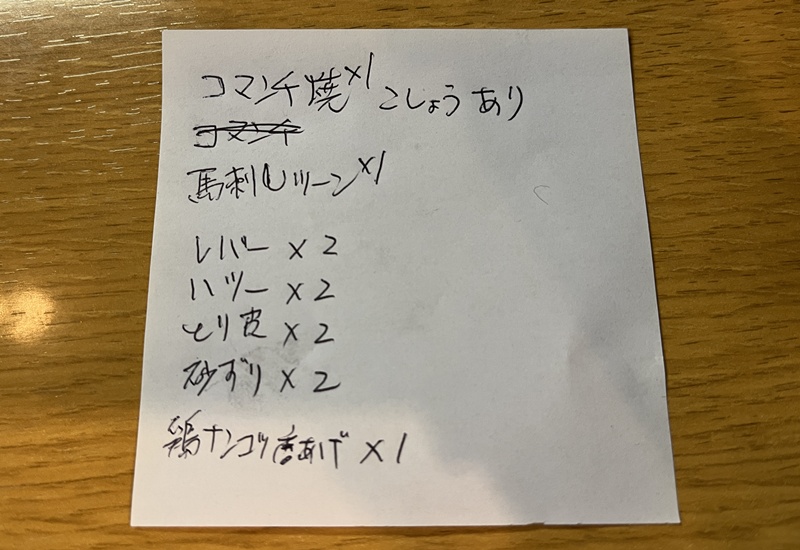 コマンチ焼×1 こしょうあり
コマンチ
馬刺しツーン×1
レバー × 2
ハツー × 2
とり皮 × 2
砂ずり × 2
鶏ナンコツ唐あげ × 1